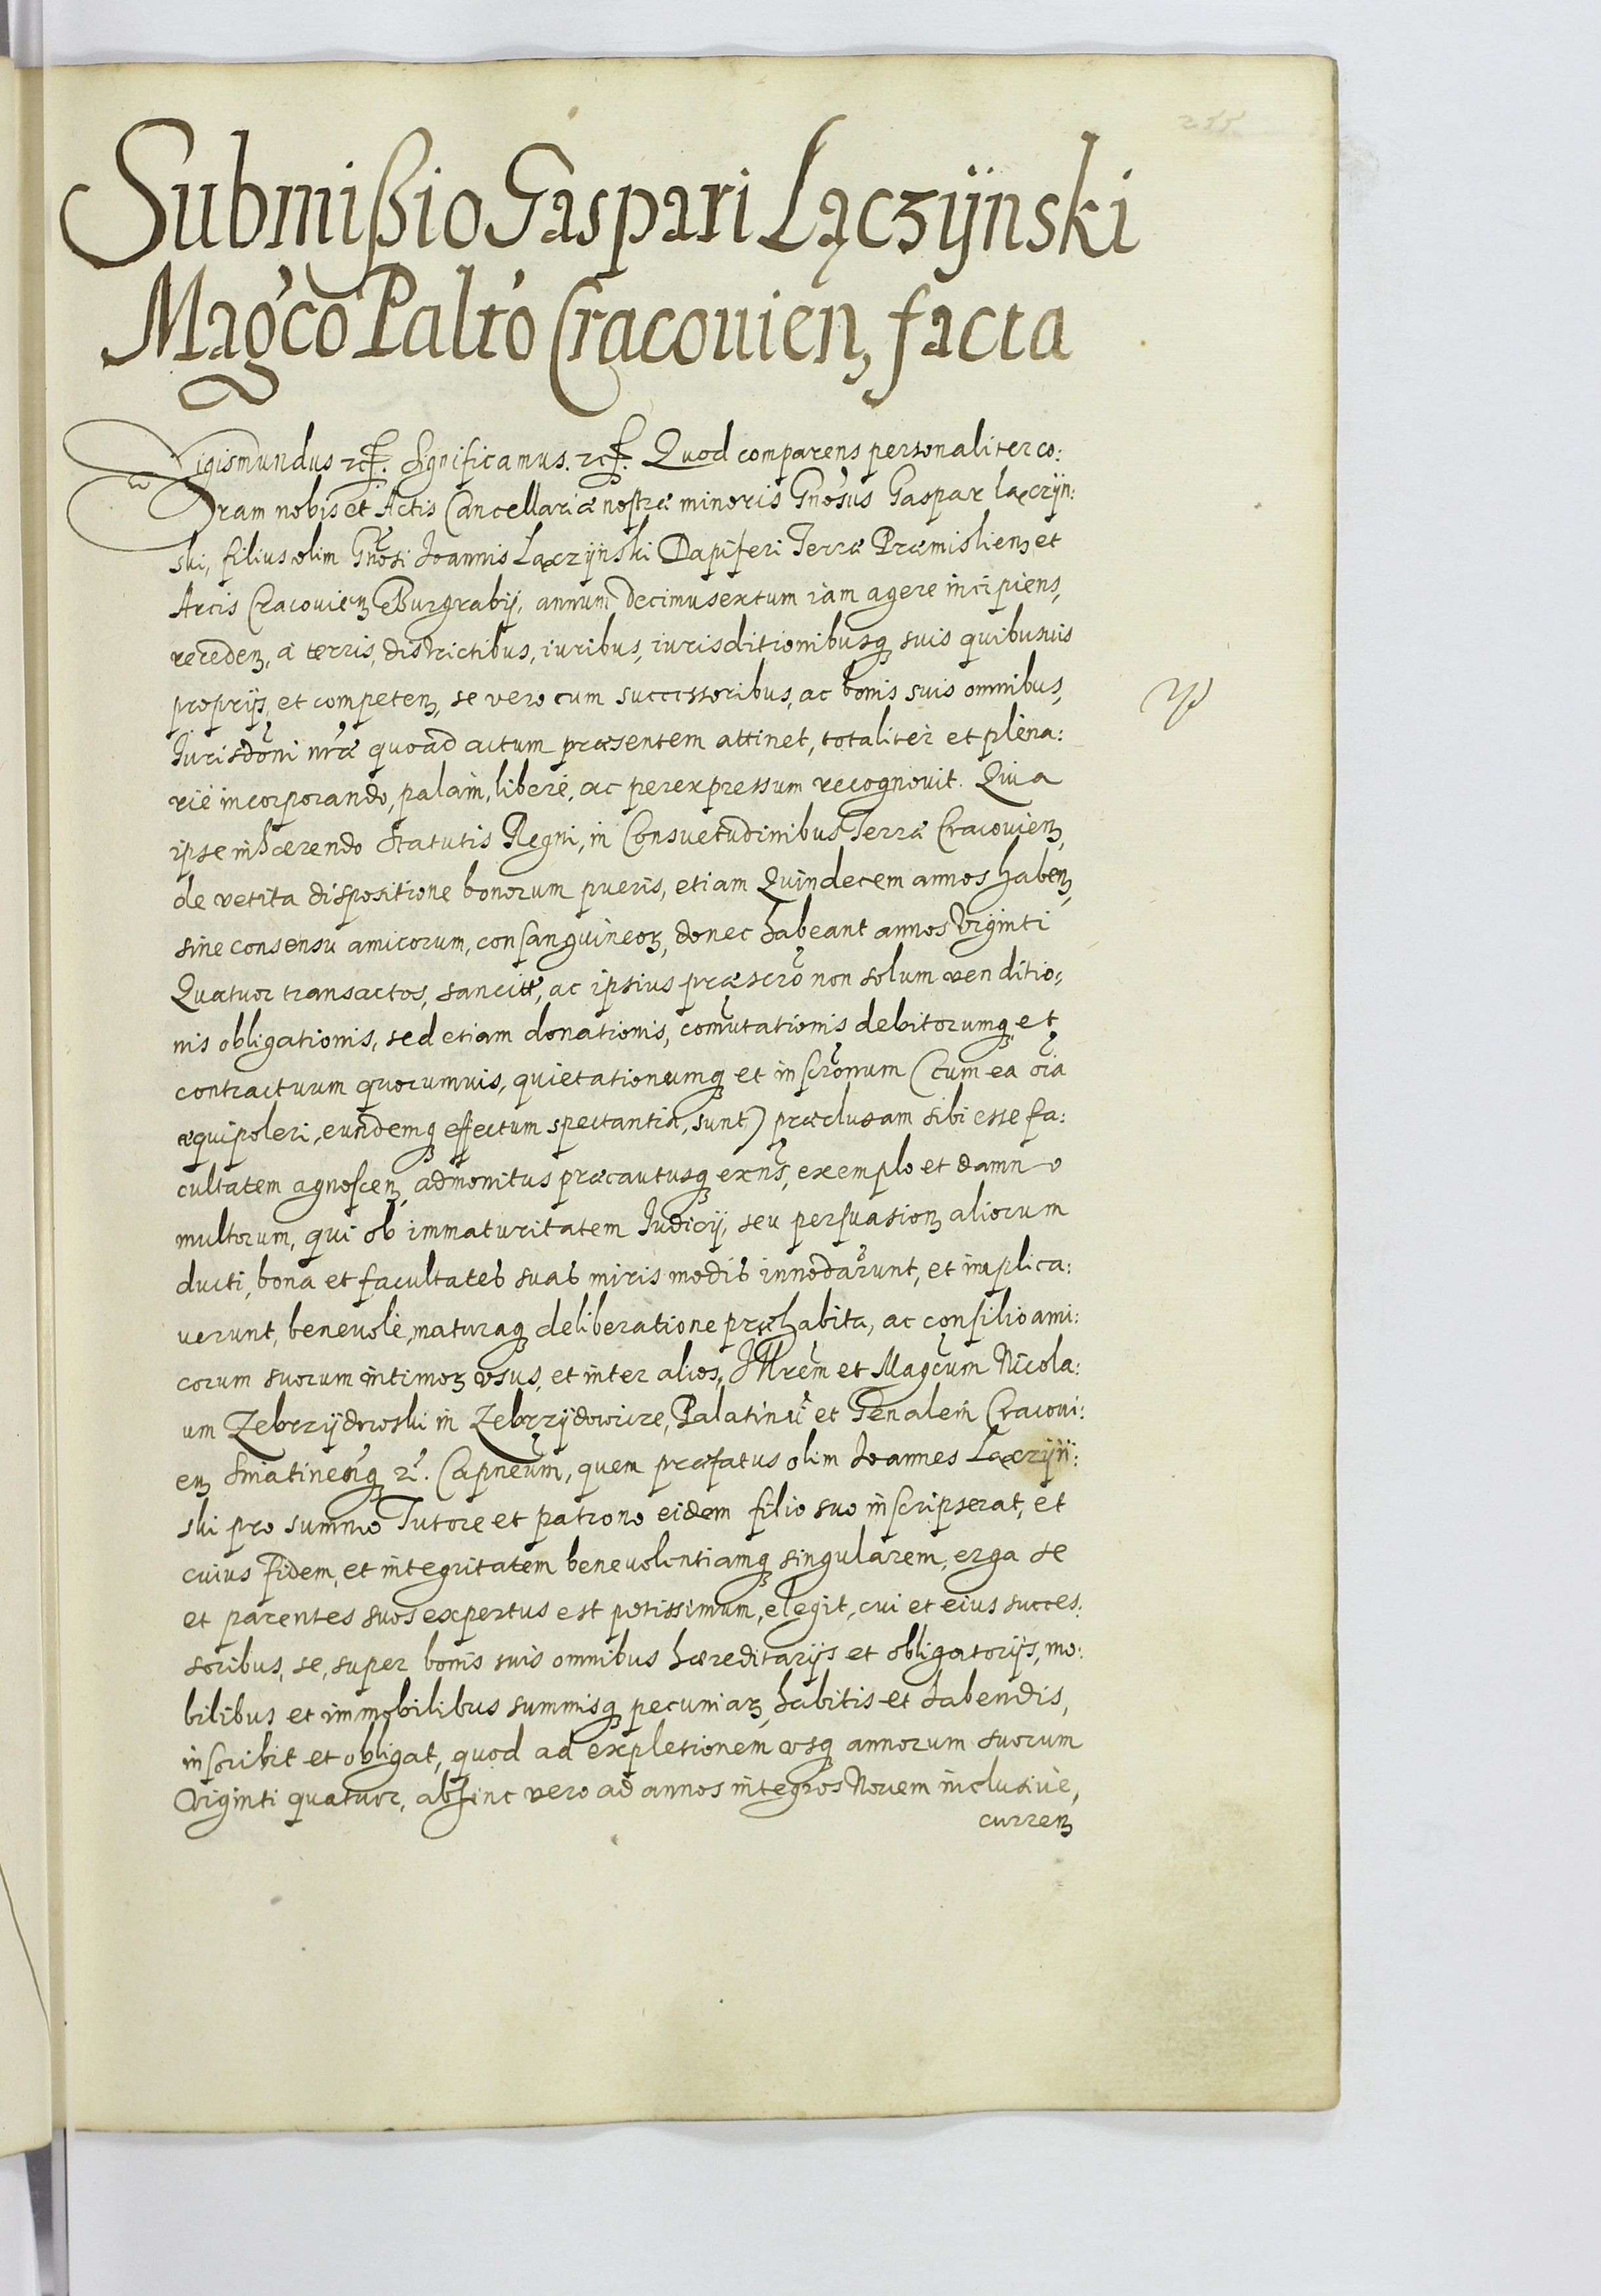 255
Submißio Gaspari Lączÿnski
Mag'co Palt'o Cracouienʒ facta
Sigismundus etc. Significamus. etc. Quod comparens personaliter co:
ram nobis et Actis Cancellariæ nostræ minoris Gnosus Gaspar Lączÿn:
ski, filius olim Gnosi Joannis Lączÿnski Dapiferi Terræ Præmislienʒ et
Arcis Cracouienʒ Burgrabÿ, annum decimusextum iam agere incipiens,
recedenʒ, a terris, districtibus, iuribus, iurisditionibusqʒ suis quibusuis
proprÿs, et competenʒ, se vero cum successoribus, ac bonis suis omnibus,
Jurisdoni nræ quoad actum præsentem attinet, totaliter et plena:
rie incorporando, palam, libere, ac perexpressum recognouit. Quia
ipse inhærendo Statutis Regni, in Consuetudinibus Terræ Cracouienʒ,
de vetita dispositione bonorum pueris, etiam Quindecem annos habenʒ,
sine consensu amicorum, consanguineorʒ, donec habeant annos Viginti
Quatuor transactos, sancitæ, ac ipsius præscro non solum venditio:
nis obligationis, sed etiam donationis, comutationis debitorumqʒ et
contractuum quorumuis, quietationumqʒ et inscronum (cum ea oia
æquipoleri, eundemqʒ effectum spectantia, sunt) præclusam sibi esse fa:
cultatem agnoscenʒ, admonitus præcautusqʒ exns, exemplo et damno
multorum, qui ob immaturitatem Judicÿ, seu persuasionʒ aliorum
ducti, bona et facultates suas miris modis innodarunt, et implica:
uerunt, beneuole, maturaqʒ deliberatione præhabita, ac consilio ami:
corum suorum intimorʒ vsus, et inter alios, Jllrem et Magcum Nicola:
um Zebrzÿdowski in Zebrzÿdowicze, Palatinu et Genalem Cracoui:
enʒ Sniatinenqʒ etc. Capneum, quem præfatus olim Joannes Lączÿn:
ski pro summo Tutore et patrono eidem filio suo inscripserat, et
cuius fidem, et integritatem beneuolentiamqʒ singularem, erga se
et parentes suos expertus est potissimum, elegit, cui et eius succes:
soribus, se, super bonis suis omnibus hæreditarÿs et obligatorÿs, mo:
bilibus et immobilibus summisqʒ pecuniarʒ, habitis et habendis,
inscribit et obligat, quod ad expletionem vsqʒ annorum suorum
Viginti quatuor, abhinc vero ad annos integros Nouem inclusiue,
currenʒ